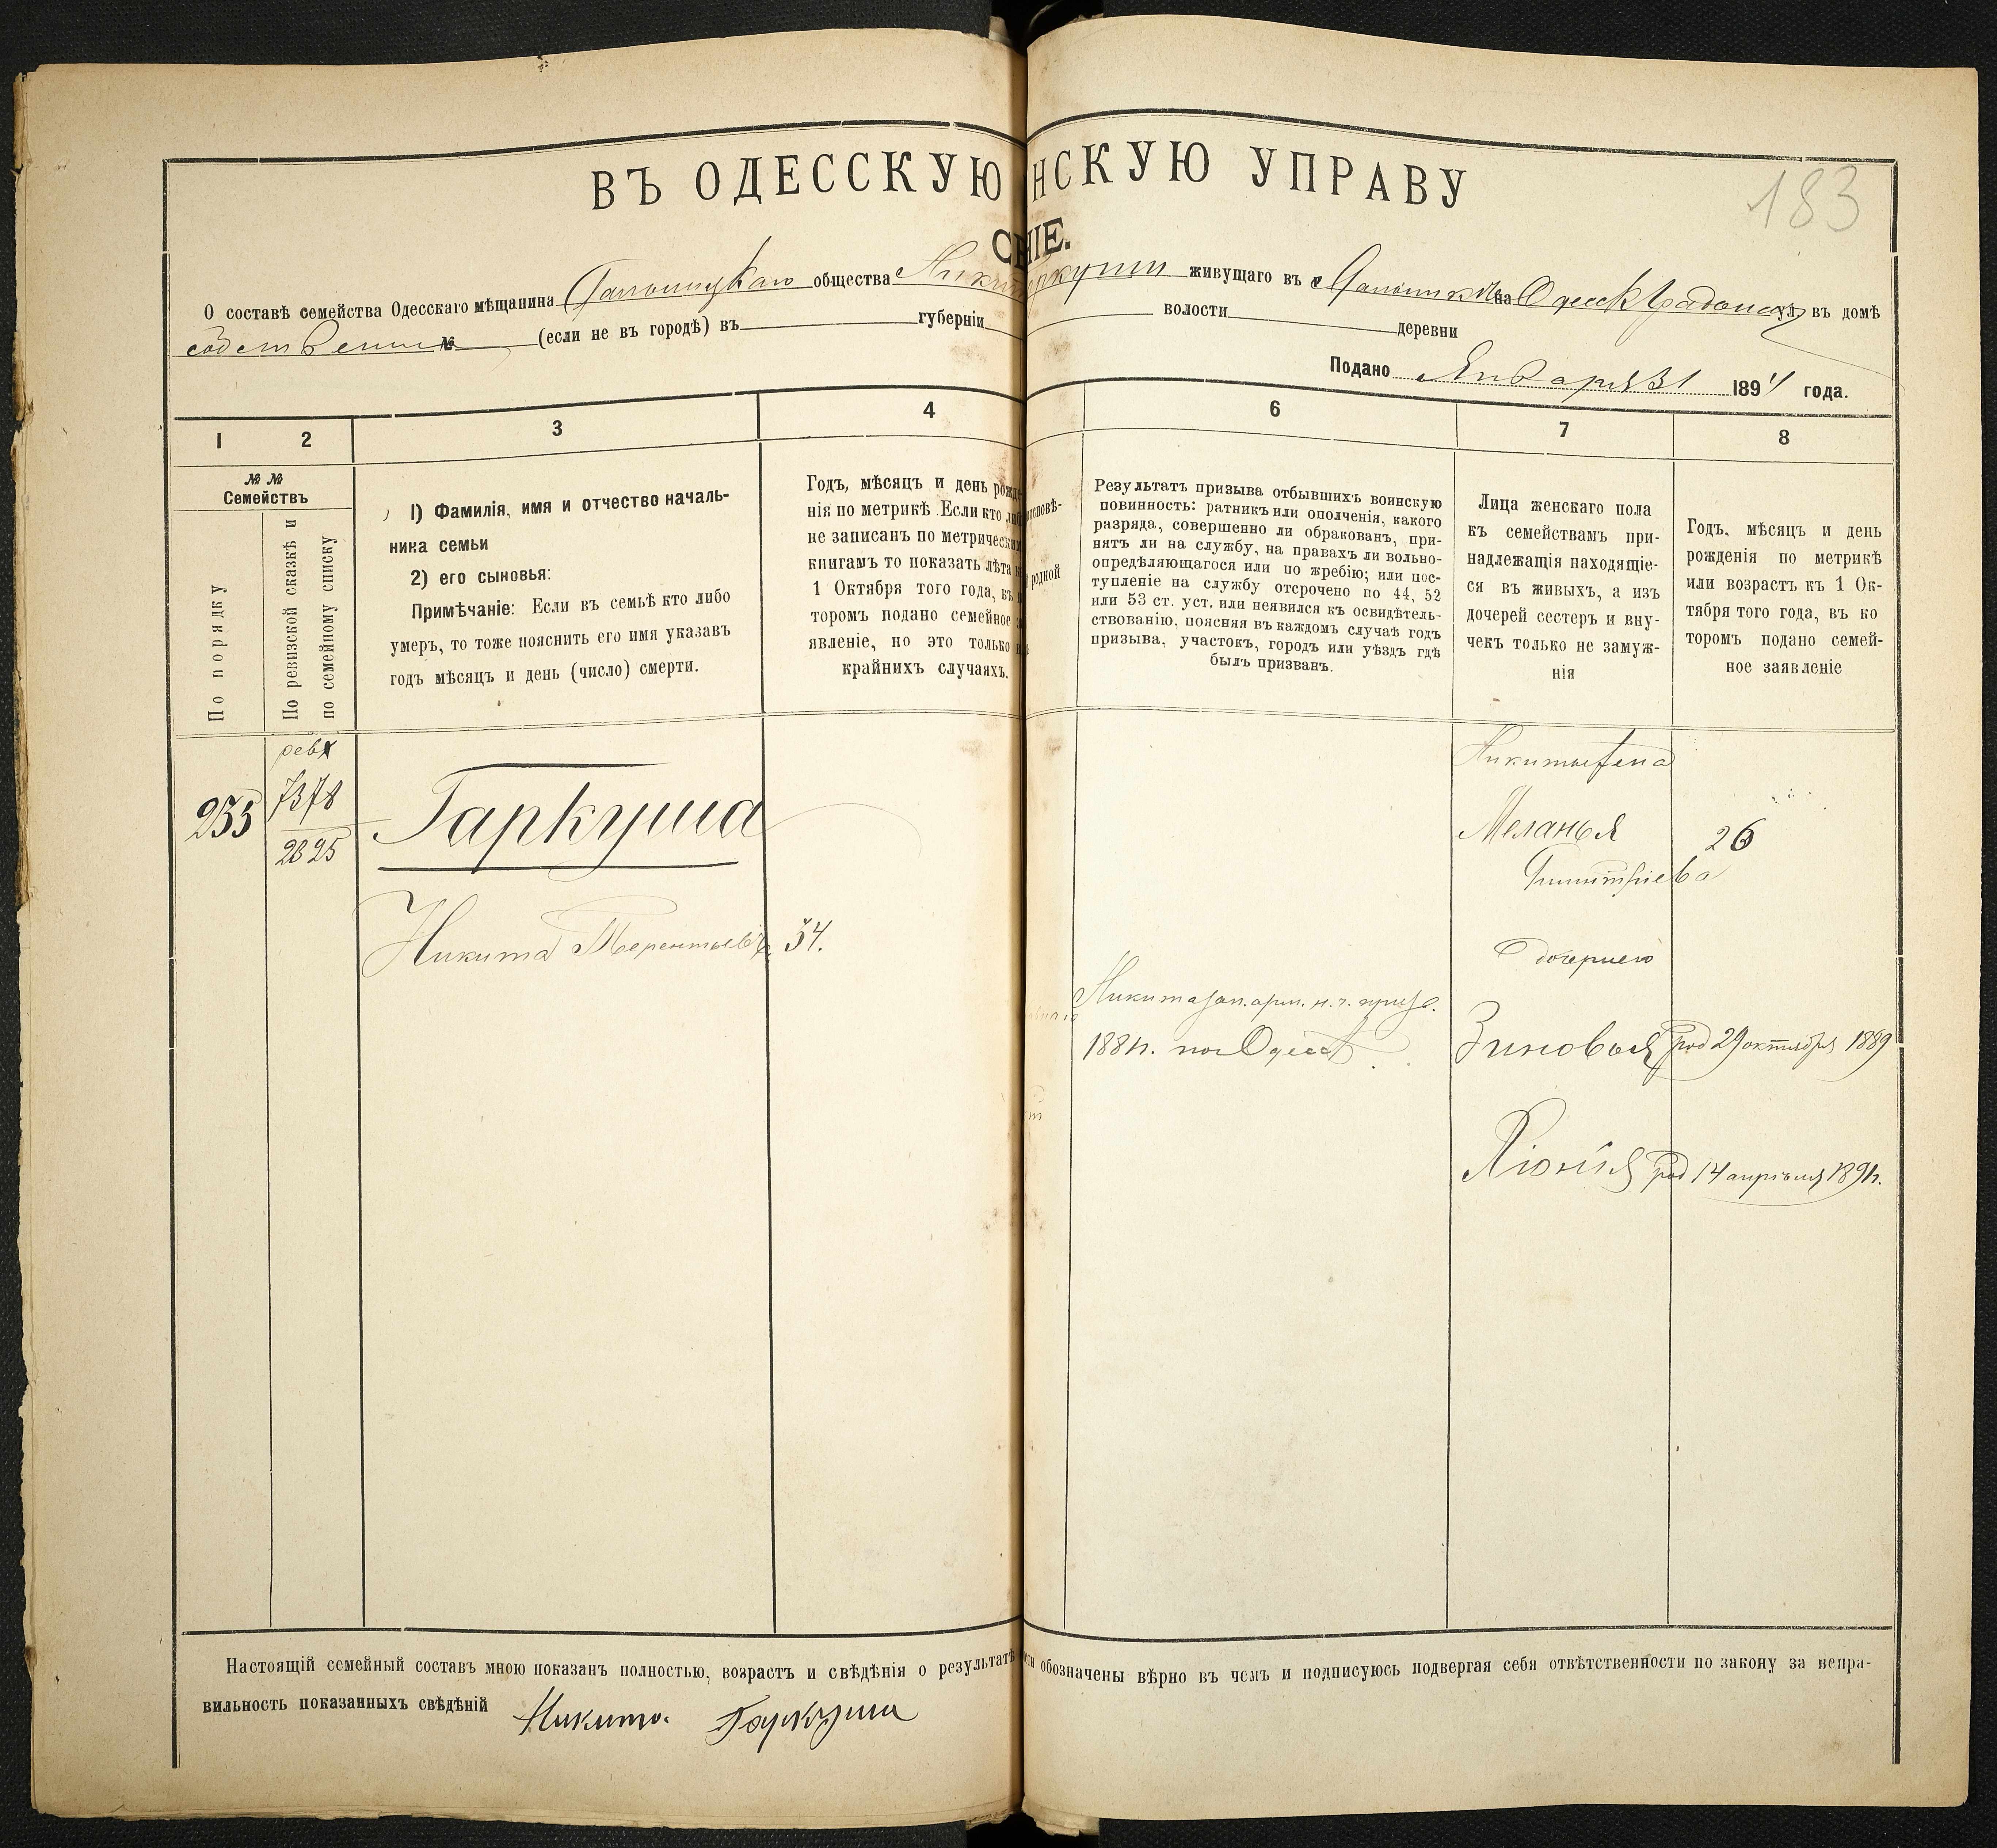 ВЪ ОДЕССКУЮ НСКУЮ УПРАВУ
183
НІЕ.
О составѣ семейства Одесскаго мѣщанина общества живущаго въ Одесск ул. въ домѣ
№ (если не въ городѣ) въ губерніи волости деревни
Подано Января 31 1894 года.
1 2 3 4 6 7 8
№ № Семействъ
По порядку
По ревизской сказкѣ и по семейному списку
1) Фамилія, имя и отчество началь-
ника семьи
2) его сыновья:
Примѣчаніе: Если въ семьѣ кто либо
умеръ, то тоже пояснить его имя указавъ
годъ мѣсяцъ и день (число) смерти.
Годъ, мѣсяцъ и день рожде
нія по метрикѣ Если кто ли
не записанъ по метрически
книгамъ то показать лѣта
1 Октября того года, въ
торомъ подано семейное
явленіе, но это только
крайнихъ случаяхъ.
исповѣ-
родной
Результатъ призыва отбывшихъ воинскую
повинность: ратникъ или ополченія, какого
разряда, совершенно ли обракованъ, при-
нятъ ли на службу, на правахъ ли вольно-
опредѣляющагося или по жребію; или пос-
тупленіе на службу отсрочено по 44, 52
или 53 ст. уст. или неявился къ освидѣтель-
ствованію, поясняя въ каждомъ случаѣ годъ
призыва, участокъ, городъ или уѣздъ гдѣ
былъ призванъ.
Лица женскаго пола
къ семействамъ при-
надлежащія находящіе-
ся въ живыхъ, а изъ
дочерей сестеръ и вну-
чекъ только не замуж-
нія
Годъ, мѣсяцъ и день
рожденія по метрикѣ
или возрастъ къ 1 Ок-
тября того года, въ ко
торомъ подано семей-
ное заявленіе
235
7378
2825
Гаркуша
Никита Терентьевъ 34.
Никита зап. арм. н. ч. призв.
Никиты жена
Меланья 26
Димитріева
дочерию
Зиновья род 29 октября 1889
Хіонія род 14 апрѣля 1891г.
Настоящій семейный составъ мною показанъ полностью, возрастъ и свѣдѣнія о результатѣ сти обозначены вѣрно въ чемъ и подписуюсь подвергая себя отвѣтственности по закону за непра-
вильность показанныхъ свѣдѣній Никита Гаркуша